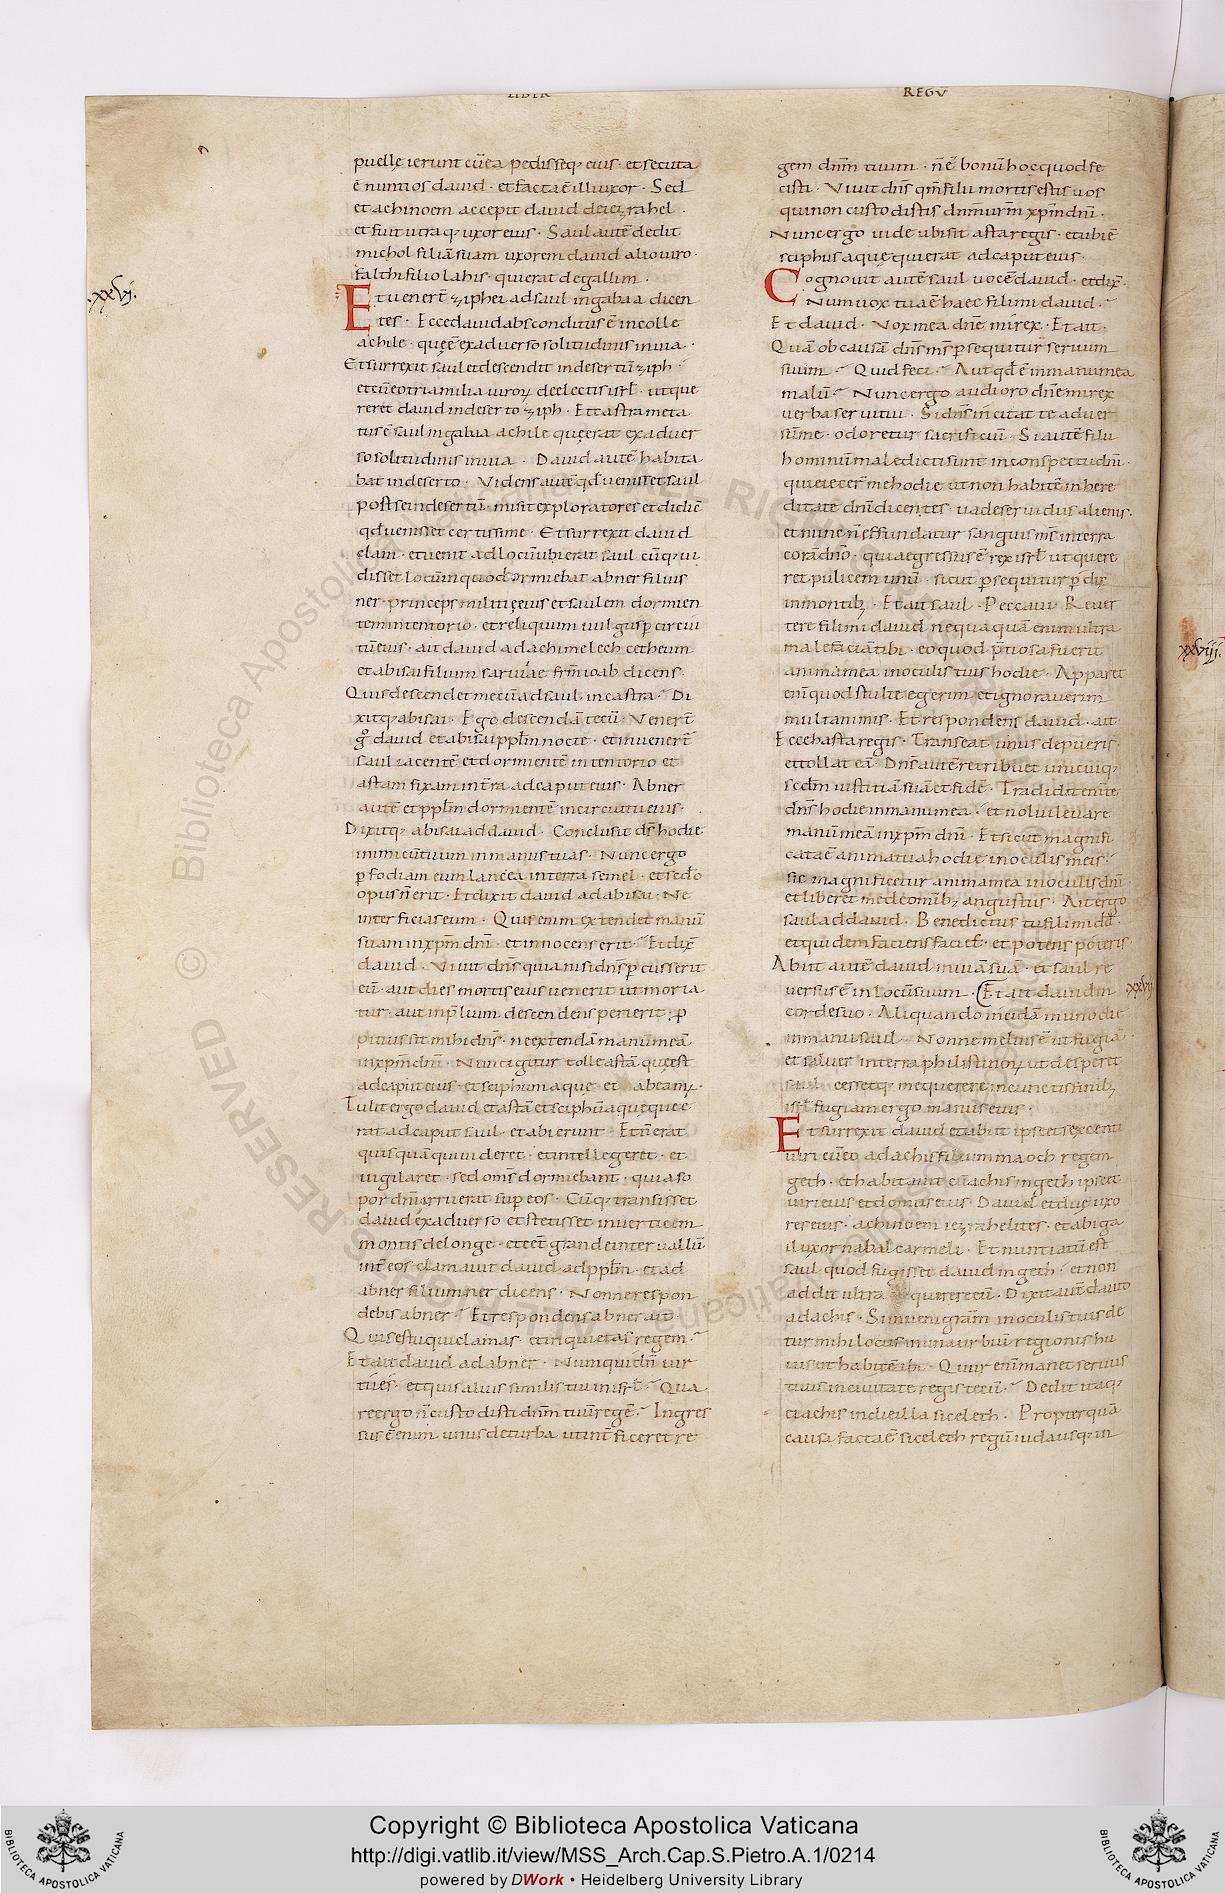 LIBER
REGV
puellę ierunt cū ea pedisseq; eius · et secuta
ē nuntios dauid · et facta ē illi uxor · Sed
et achinoem accepit dauid de iezrahel ·
et fuit utraq; uxor eius · Saul autē dedit
michol filiā suam uxorem dauid alio uiro ·
falthi filio lahis · qui erat de gallim ·
·xxvj·
Et uenert̄ ziphei ad saul in gabaa dicen
tes · Ecce dauid absconditus ē in colle
achile · quę ē ex aduerso solitudinis in uia ·
Et surrexit saul et descendit in desertū ziph ·
et cū eo tria milia uiroꝝ de electis isrl̄ · ut que
reret dauid in deserto ziph · Et castra meta
tus ē saul in gabaa achile quę erat ex aduer
so solitudinis in uia · Dauid autē habita
bat in deserto · Videns autē qd̄ uenisset saul
post se in desertū · misit exploratores et didic̄
qd̄ uenisset certissime · Et surrexit dauid
clam · et uenit ad locū ubi erat saul · cūq; ui
disset locū in quo dormiebat abner filius
ner · princeps militię eius et saulem dormien
tem in tentorio · et reliquum uulgus p̄ circui
tū eius · ait dauid ad achimelech cetheum
et abisai filium saruiae frm̄ ioab dicens ·
Quis descendet mecū ad saul in castra · Di
xitq; abisai · Ego descendā tecū · Venert̄
g̊ dauid et abisai ad ppl̄m nocte · et inuenert̄
saul iacentē et dormientē in tentorio et
astam fixam in tr̄a ad caput eius · Abner
autē et ppl̄m dormientē in circuitu eius ·
Dixitq; abisai ad dauid · Conclusit ds̄ hodie
inimicū tuum in manus tuas · Nunc ergo
p̄fodiam eum lancea in terra semel · et sedo
opus n̄ erit · Et dixit dauid ad abisai · Ne
interficias eum · Quis enim extendet manū
suam in xpm̄ dnī · et innocens erit · Et dix̄
dauid · Viuit dn̄s quia nisi dn̄s p̄cusserit
eū · aut dies mortis eius uenerit ut moria
tur · aut in p̄lium descendens perierit · p̄
pitius sit mihi dn̄s · ne extendā manū meā
in xpm̄ dnī · Nunc igitur tolle astā quę est
ad caput eius · et sciphum aquę · et abeam; ·
Tulit ergo dauid et astā et sciphū aquę que e
rat ad caput saul · et abierunt · Et n̄ erat
quisquā qui uideret · et intellegeret · et
uigilaret · sed oms̄ dormiebant · quia so
por dnī irruerat sup̄ eos · Cūq; transisset
dauid ex aduerso · et stetisset in uertice m
montis de longe · et ee͞t grande interuallū
int̄ eos · clamauit dauid ad ppl̄m · et ad
abner filium ner dicens · Nonne respon
debis abner · Et respondens abner ait ·
Quis es tu qui clamas · et inquietas regem ·
Et ait dauid ad abner · Numquid n̄ uir
tu es · et quis alius similis tui in isrl̄ · Qua
re ergo n̄ custodisti dnm̄ tuū regē · Ingres
sus ē enim unus de turba ut int̄ficeret re
gem dnm̄ tuum · n̄ ē bonū hoc quod fe
cisti · Viuit dn̄s qm̄ filii mortis estis uos
qui non custodistis dnm̄ urm̄ xpm̄ dnī ·
Nunc ergo uide ubi sit asta regis · et ubi ē
sciphus aquę qui erat ad caput eius ·
Cognouit autē saul uocē dauid · et dix̄ ·
Num uox tua ē haec fili mi dauid ·
Et dauid · Vox mea dn̄e mi rex · Et ait ·
Quā ob causā dn̄s ms̄ p̄sequitur seruum
suum · Quid feci · Aut qd̄ ē in manu mea
malū · Nunc ergo audi oro dn̄e mi rex
uerba serui tui · Si dn̄s incitat te aduer
sū me · odoretur sacrificiū · Si autē filii
hominū maledicti sunt in conspectu dnī ·
qui eiecer̄ me hodie ut non habitē in here
ditate dnī dicentes · uade serui diis alienis ·
et nunc n̄ effundatur sanguis ms̄ in terra
corā dnō · quia egressus ē rex isrl̄ ut quere
ret pulicem unū · sicut p̄sequitur p̄dix
in montib; · Et ait saul · Peccaui · Reuer
tere fili mi dauid nequaquā enim ultra
male faciā tibi · eo quod p̄tiosa fuerit
anima mea in oculis tuis hodie · Apparet
enī quod stulte egerim et ignorauerim
multa nimis · Et respondens dauid · ait ·
Ecce hasta regis · Transeat unus de pueris
et tollat eā · Dn̄s autē retribuet unicuiq;
scdm̄ iustitiā suā et fidē · Tradidit eni te
dn̄s hodie in manū mea · et nolui leuare
manū meā in xpm̄ dnī · Et sicut magnifi
cata ē anima tua hodie in oculis meis ·
sic magnificetur anima mea in oculis dnī ·
et liberet me de omib; angustiis · Ait ergo
saul ad dauid · Benedictus tu fili mi dd̄ ·
et quidem faciens facies · et potens poteris ·
Abiit autē dauid in uiā suā · et saul re
uersus ē in locū suum · Et ait dauid in
xxvij
corde suo · Aliquando incidā in uno die
in manu saul · Nonne melius ē ut fugiā
et saluer in terra philistinoꝝ ut desperet
saul cessetq; me querere in cunctis finib;
isrl̄ fugiam ergo manus eius ·
Et surrexit dauid et abiit ipse et sexcenti
uiri cū eo ad achis filium maoch regem
geth · et habitauit cū achis in geth ipse et
uiri eius et domus eius · Dauid et duę uxo
res eius · achinoem iezrahelites · et abiga
il uxor nabal carmeli · Et nuntiatū est
saul quod fugisset dauid in geth · et non
addit ultra querere eū · Dixit aut̄ dauid
ad achis · Si inueni gratm̄ in oculis tuis de
tur mihi locus in una urbiū regionis hu
ius ut habitē ibi · Q̄ur enī manet seruus
tuus in ciuitate regis tecū · Dedit itaq;
ei achis in die illa siceleth · Propter quā
causa facta ē siceleth regū iuda usq; in
xxviij·
Copyright © Biblioteca Apostolica Vaticana
http://digi.vatlib.it/view/MSS_Arch.Cap.S.Pietro.A.1/0214
powered by DWork • Heidelberg University Library